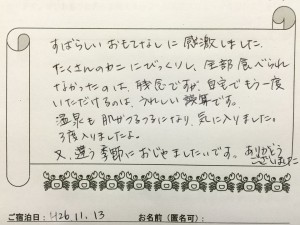 すばらしいおもてなしに感激しました。
たくさんのカニにびっくりし、全部食べられ
なかったのは、残念ですが、自宅でもう一度
いただけるのは、うれしい誤算です。
温泉も肌がつるつるになり、気に入りました。
3度入りましたよ。
又、違う季節におじゃましたいです。ありがとう
ございました
ご宿泊日：H26.11.13 お名前（匿名可）：